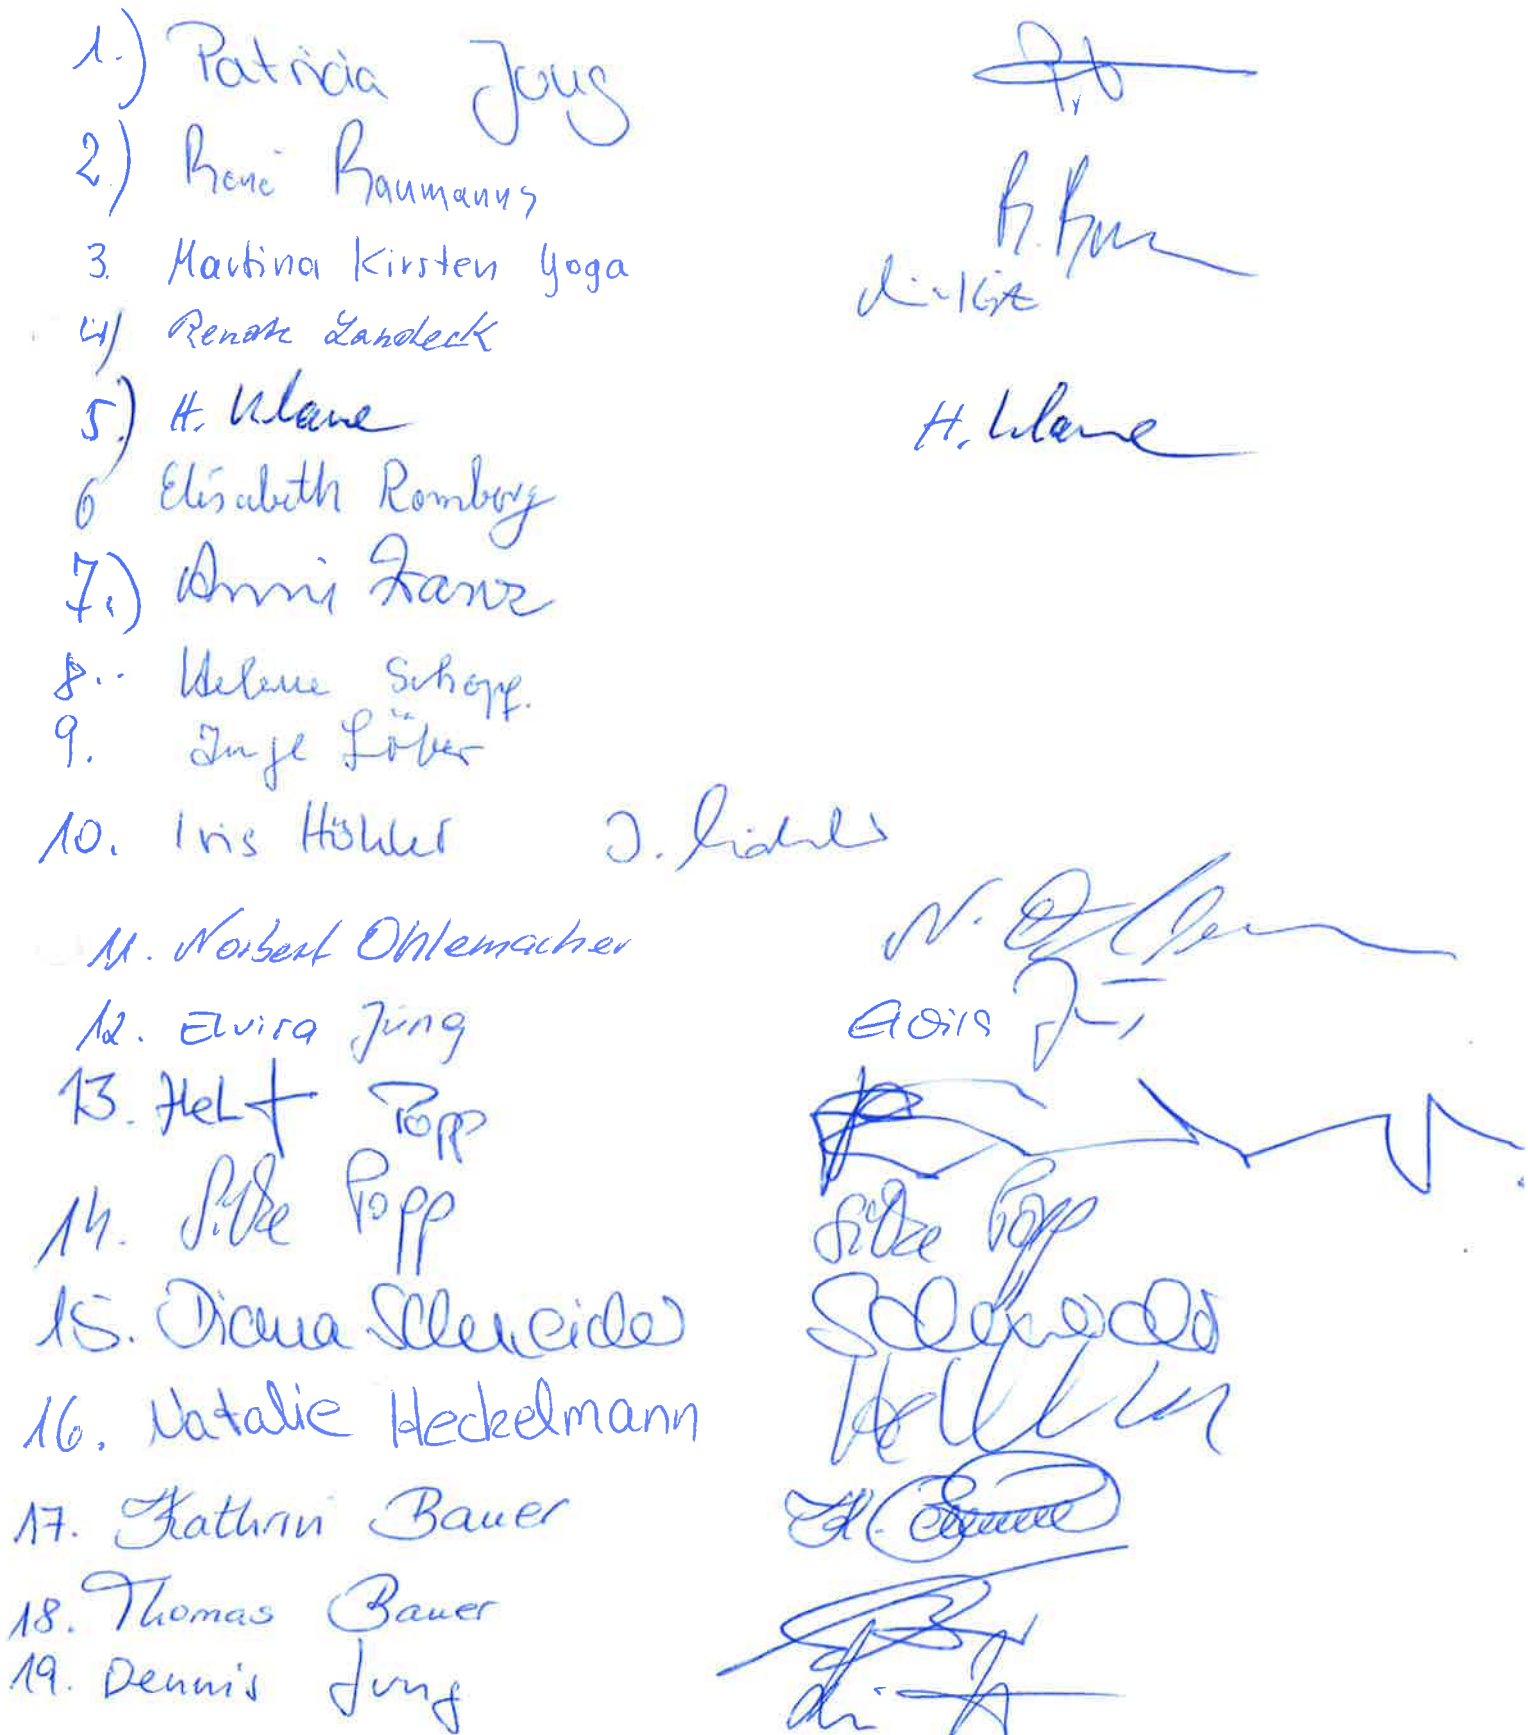 1.) Patricia Jung
2.) René Baumanns
R. Bau
3. Martina Kirsten Yoga
4) Renate Landeck
5.) H. Klane H. Klane
6 Elisabeth Romberg
7.) Anni Franz
8.. Helene Schopp.
9. Inge Löber
10. Iris Höhler I. Höhler
11. Norbert Ohlemacher
12. Elvira Jung Elvira Jung
13. Helmut Popp
14. Silke Popp Silke Popp
15. Diana Schneider Schneider
16. Natalie Heckelmann
17. Kathrin Bauer
18. Thomas Bauer
19. Dennis Jung